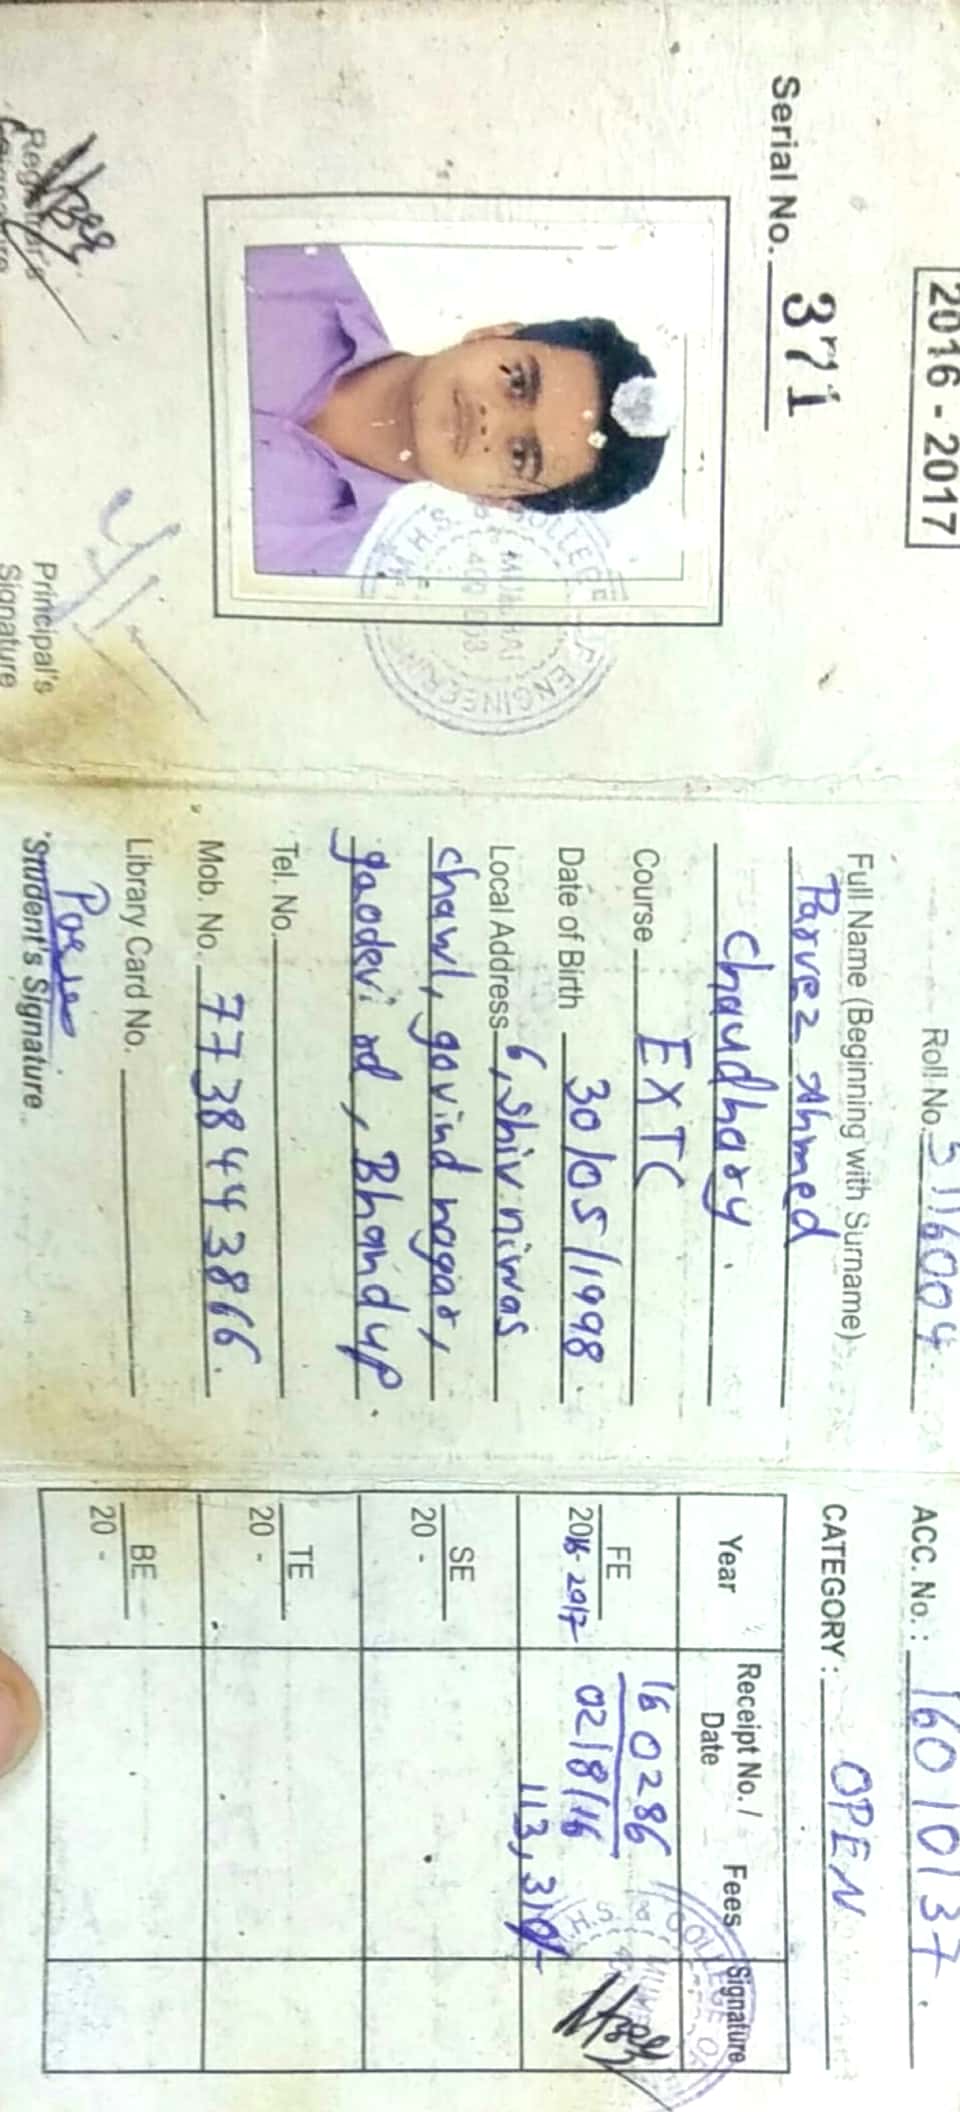 2016 - 2017
Serial No. 371
COLLEGE OF ENGINEERING
M.H.S.S.
MUMBAI
400 008.
Registrar's
Signature
Principal's
Signature
Roll No. 5116004
Full Name (Beginning with Surname)
Parvez Ahmed
Chaudhary.
Course EXTC
Date of Birth 30/05/1998
Local Address 6, Shiv niwas
chawl, govind nagar,
gaodevi rd, Bhandup.
Tel. No.
Mob. No. 7738443866.
Library Card No.
Student's Signature
ACC. No. : 16010137.
CATEGORY : OPEN
Year Receipt No. / Date Fees Signature
FE 2016-2017 160286 02/8/16 113,310/-
SE 20 -
TE 20 -
BE 20 -